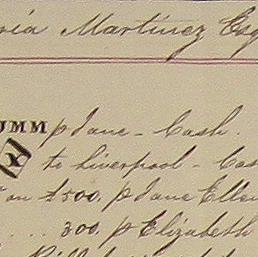 ria Martinez Esq
JMM p Jane - Cash.
Y to Liverpool - Cas
on £500, p Jane Ellen
.... 300, p Elizabeth